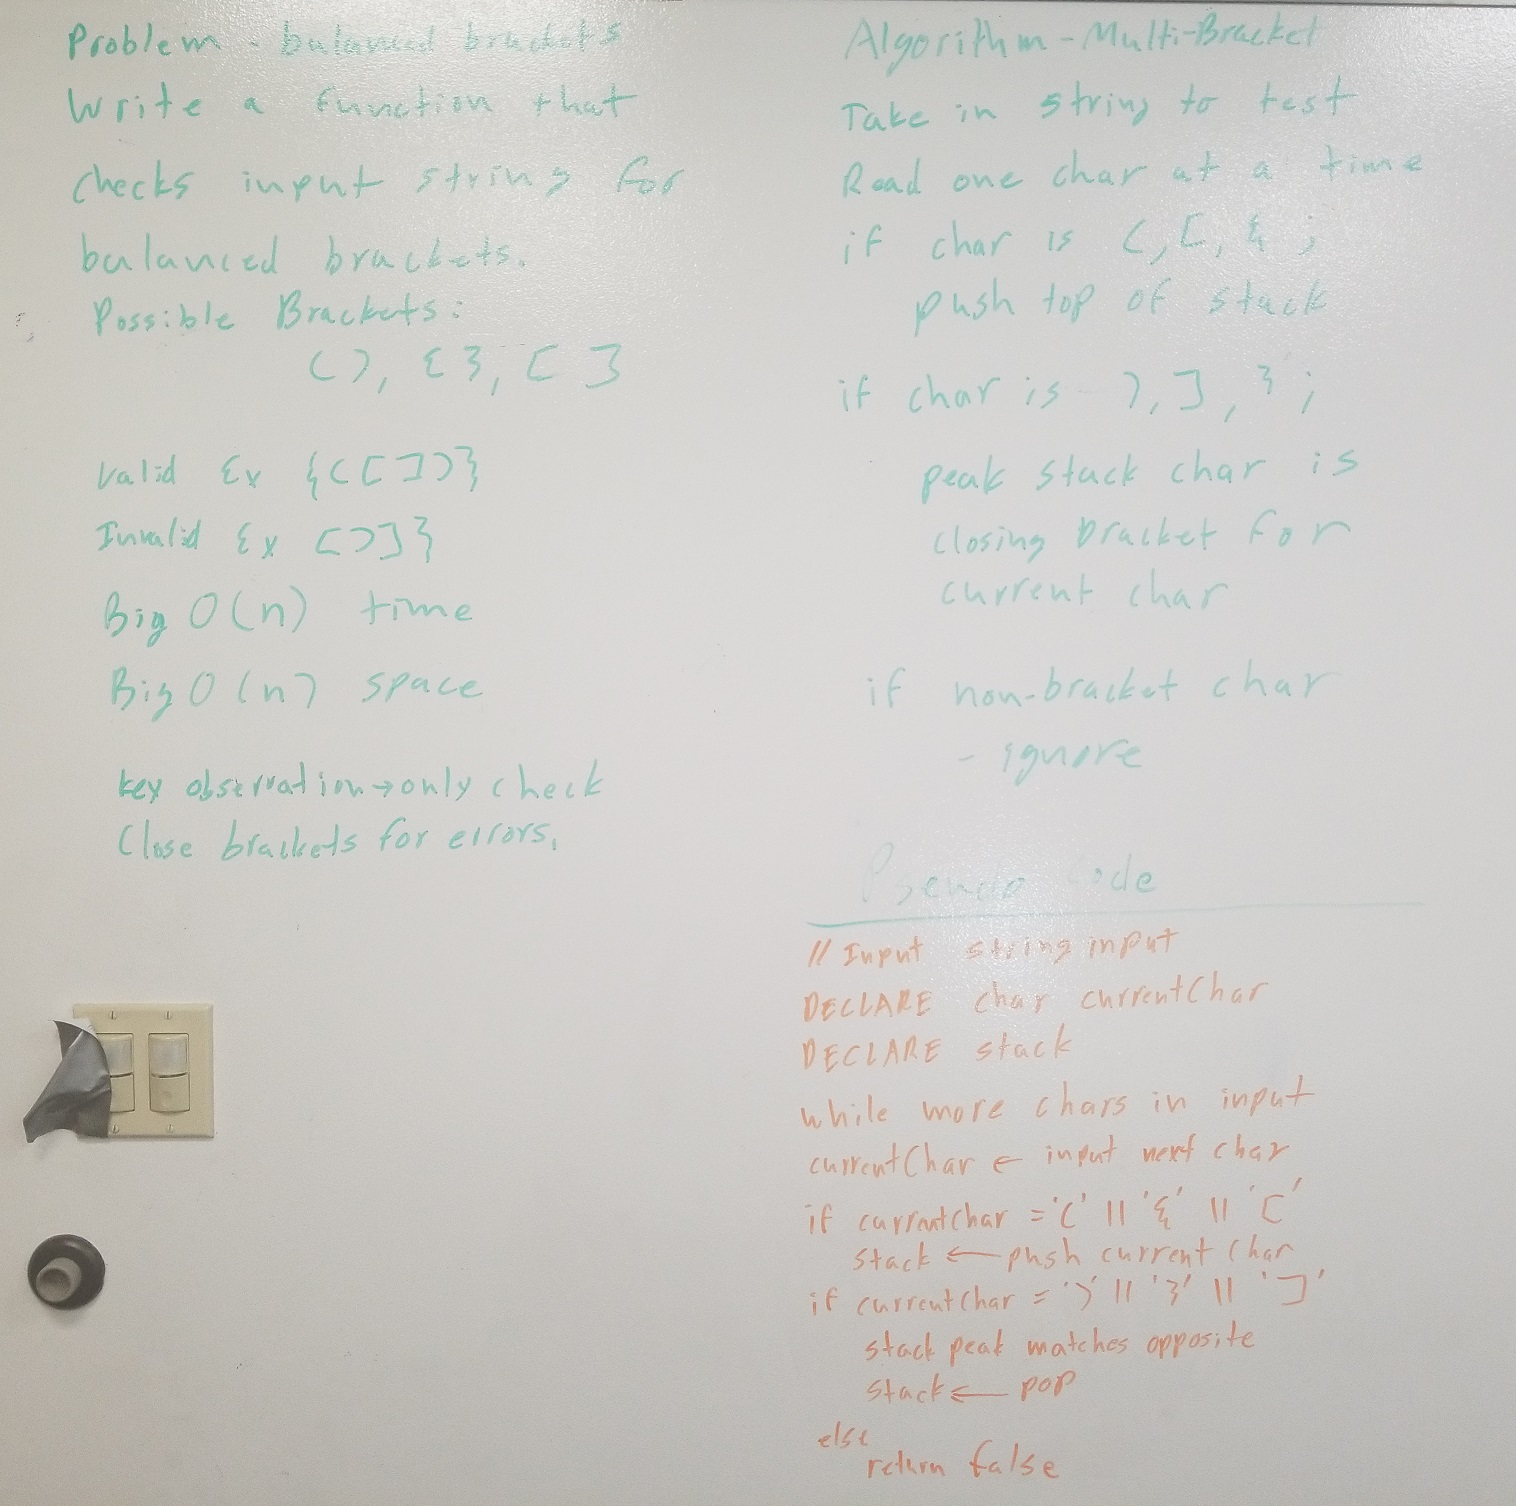 Problem - balanced brackets
Write a function that
checks input string for
balanced brackets.
Possible Brackets:
( ), { }, [ ]
Valid Ex {([])}
Invalid Ex [)]}
Big O(n) time
Big O(n) space
key observation → only check
Close brackets for errors.
Algorithm - Multi-Bracket
Take in string to test
Read one char at a time
if char is (, [, { ;
push top of stack
if char is ), ], } ;
peak stack char is
closing bracket for
current char
if non-bracket char
- ignore
Pseudo Code
// Input string input
DECLARE char currentChar
DECLARE stack
while more chars in input
currentChar ← input next char
if currentChar = '(' || '{' || '['
stack ← push current char
if currentChar = ')' || '}' || ']'
stack peak matches opposite
stack ← pop
else
return false